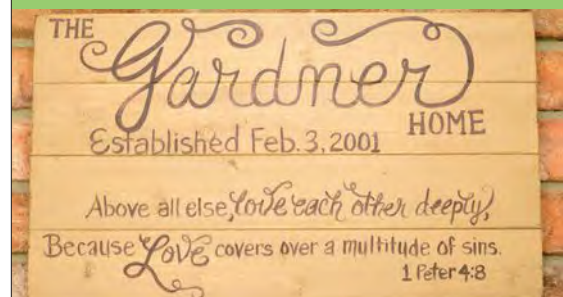 THE
Gardner
HOME
Established Feb. 3, 2001
Above all else, love each other deeply,
Because Love covers over a multitude of sins.
1 Peter 4:8